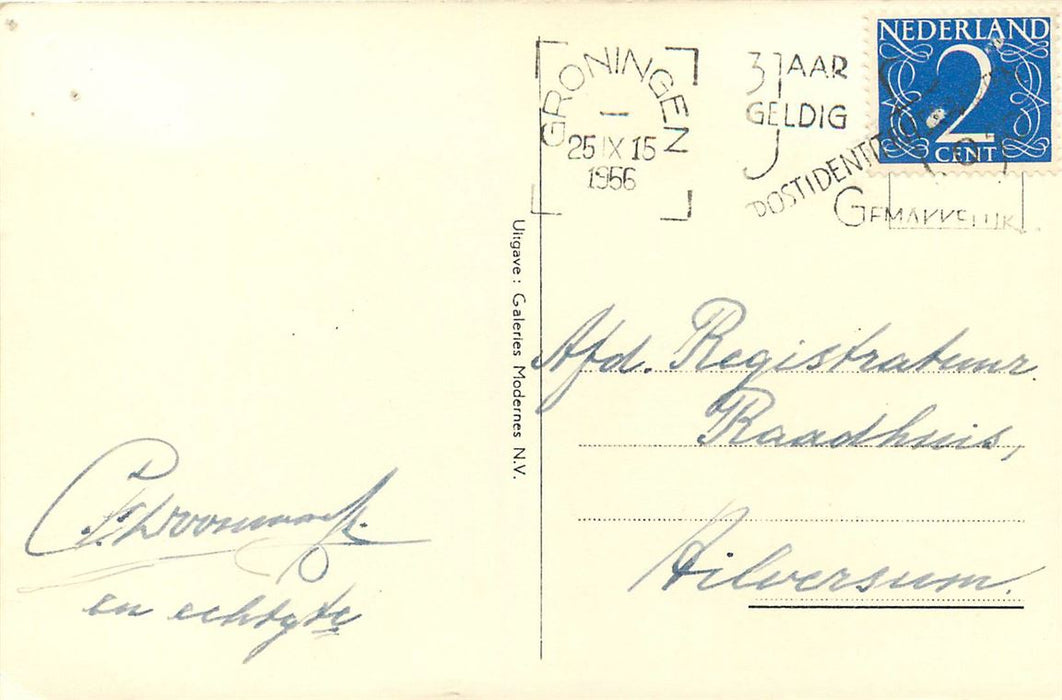 GRONINGEN
25 IX 15
1956
3 JAAR
GELDIG
POSTIDENTIT
GEMAKKELIJK
NEDERLAND
2
CENT
Uitgave: Galeries Modernes N.V.
Afd. Registratuur
Raadhuis,
Hilversum.
en echtgte